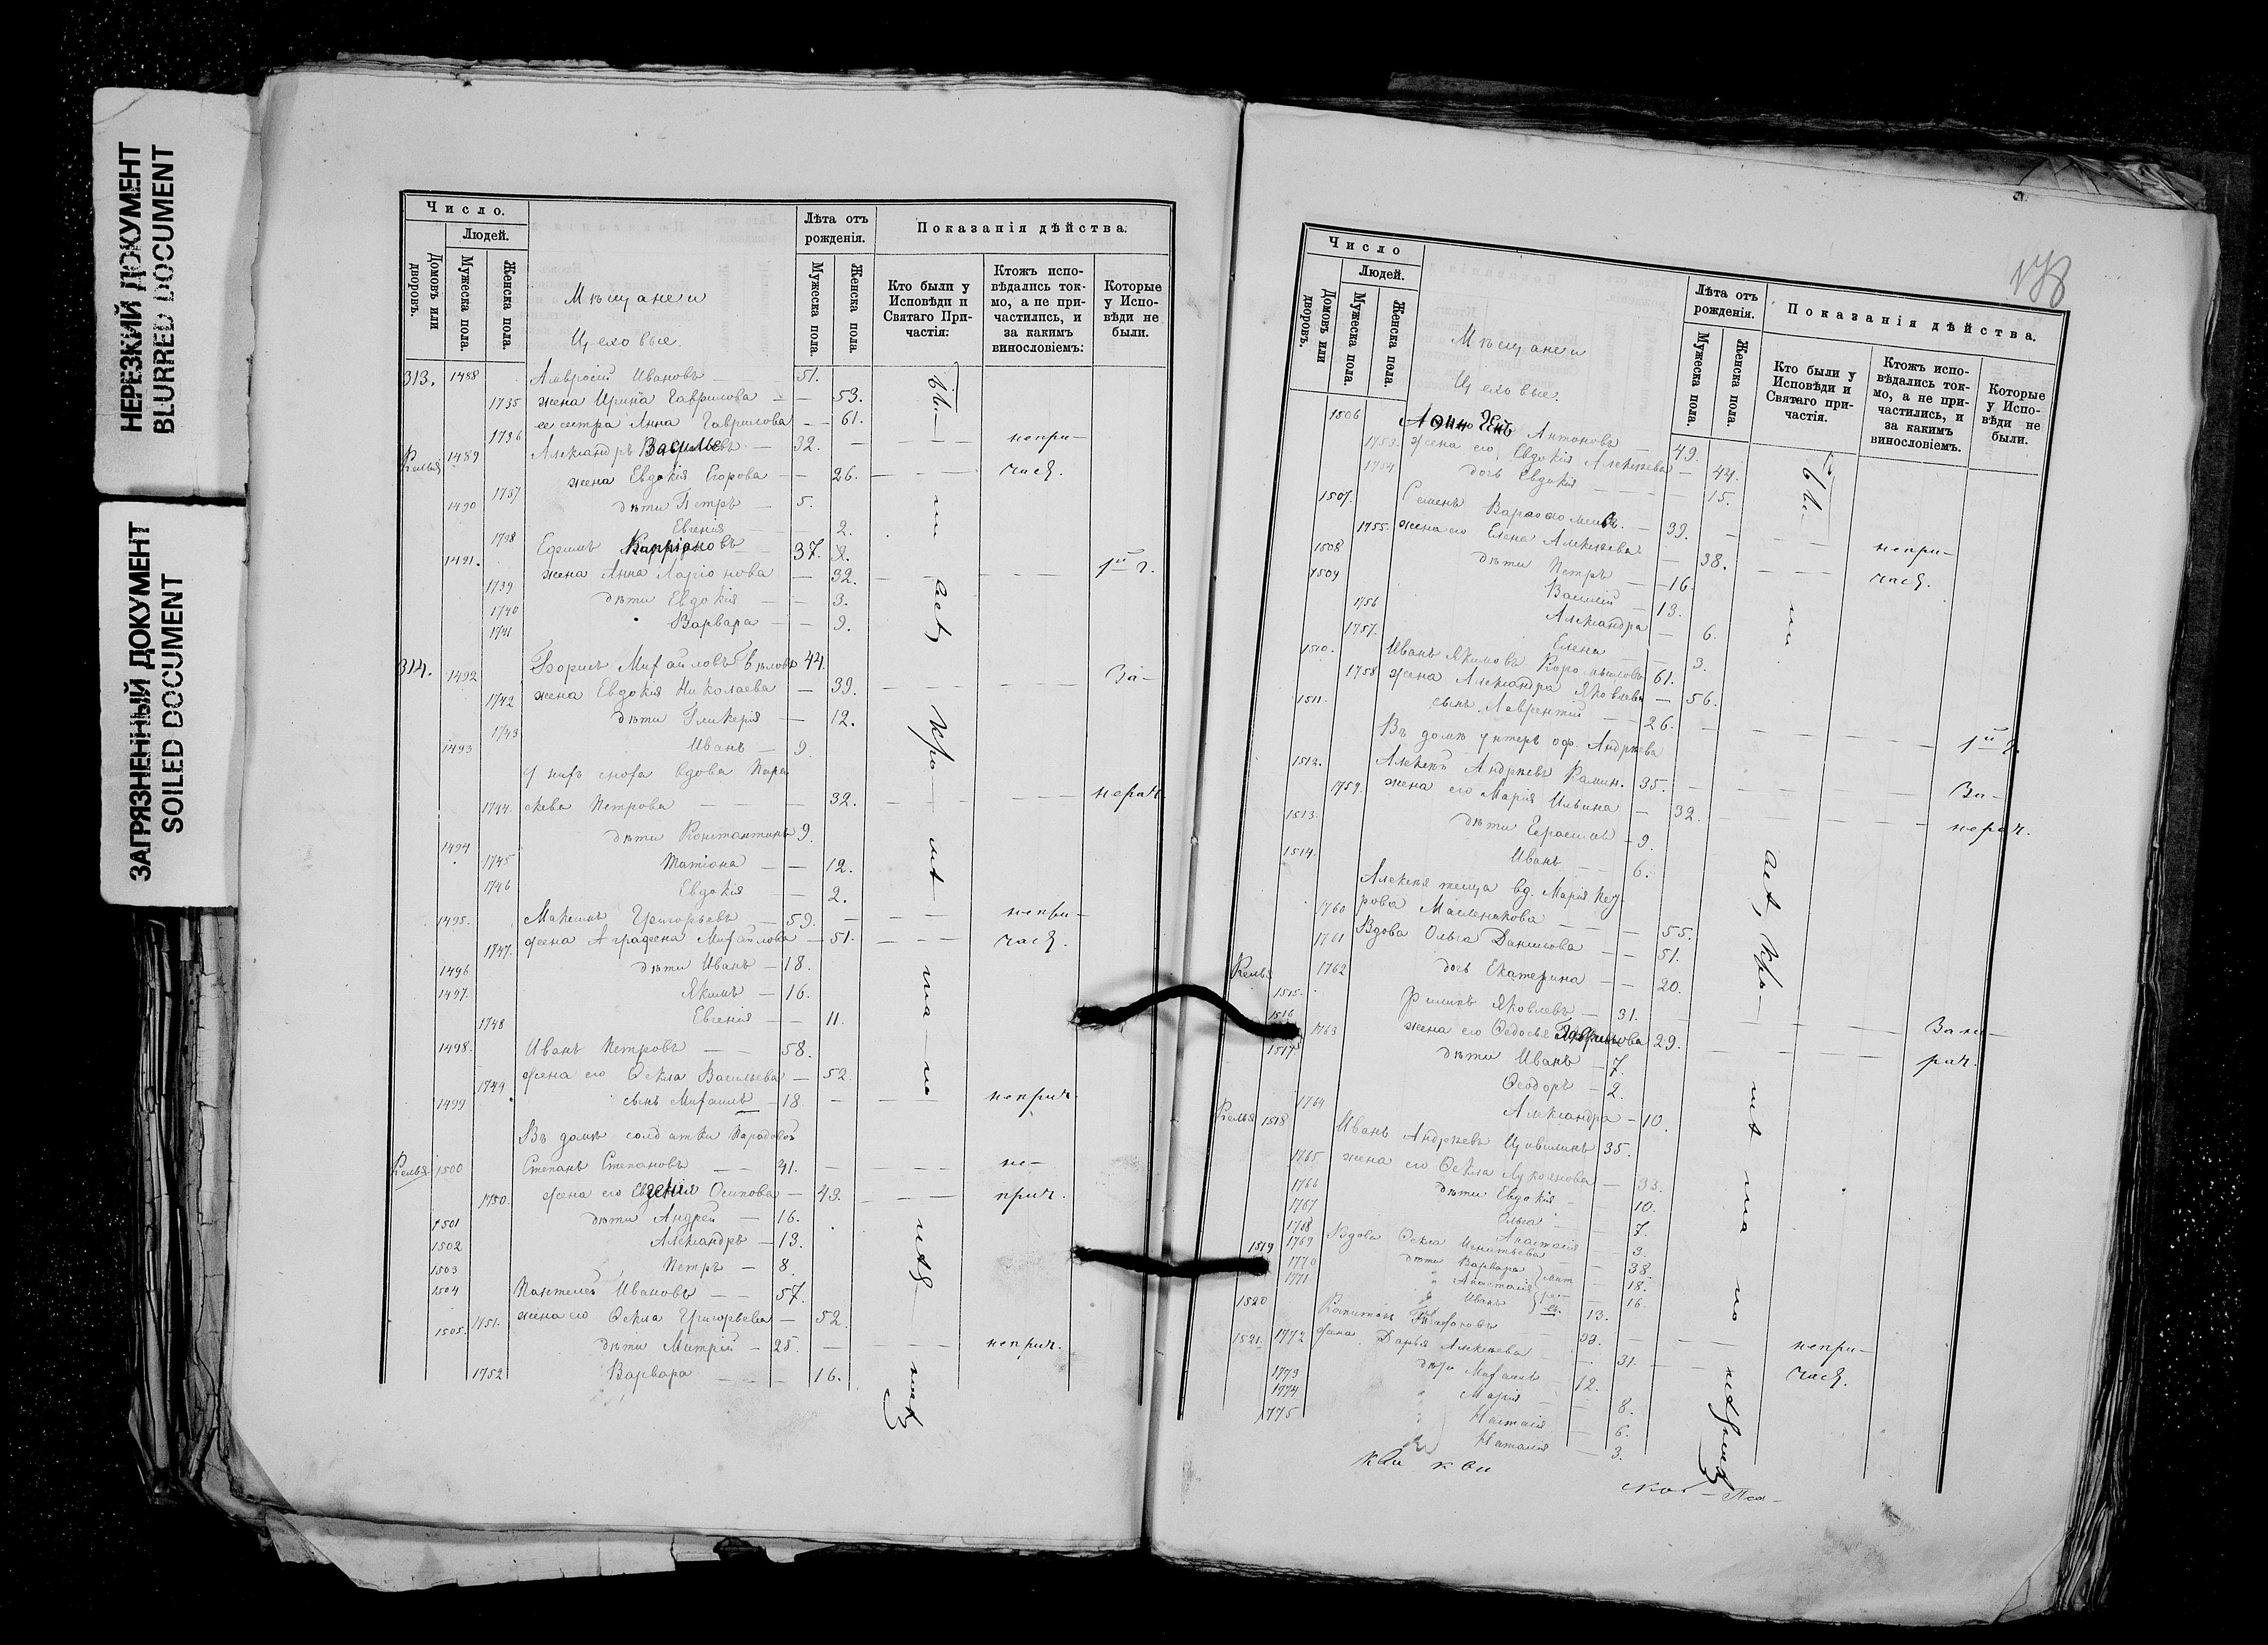 НЕРЕЗКИЙ ДОКУМЕНТ
BLURRED DOCUMENT
ЗАГРЯЗНЕННЫЙ ДОКУМЕНТ
SOILED DOCUMENT
Число.
Людей.
Домовъ или дворовъ.
Мужеска пола.
Женска пола.
Мѣщане и
Цеховые.
Лѣта отъ рожденія.
Мужеска пола.
Женска пола.
Показанія дѣйства.
Кто были у Исповѣди и Святаго При-частія:
Ктожъ испо-вѣдались ток-мо, а не при-частились, и за какимъ винословіемъ:
Которые у Испо-вѣди не были.
313. 1488 Амвросій Ивановъ 51.
1735 жена Ирина Гаврилова — 53.
1736 ее сестра Анна Гаврилова — 61.
Келья 1489 Александръ Васильевъ — 32. — непри-
1737 жена Евдокія Егорова — 26. — част.
1490 дѣти Петръ — 5.
1738 Евгенія — 2.
1491. Ефимъ 37.
1739 жена Анна Ларіонова — 32.
1740 дѣти Евдокія — 3.
1741 Варвара — 9.
314. 1492 Борисъ Михайловъ Бѣловъ 44.
1742 жена Евдокія Николаева — 39. — За-
1743 дѣти Гликерія — 12.
1493 Иванъ — 9
У нихъ сноха вдова Пара
1744. скева Петрова — 32. — нерач.
1494 дѣти Константинъ 9.
1745 Татіана — 12.
1746 Евдокія — 2.
1495. Максимъ Григорьевъ — 59. — непри-
1747. жена Аграфена Михайлова — 51. — част.
1496 дѣти Иванъ — 18.
1497. Якимъ — 16.
1748 Евгенія — 11.
1498. Иванъ Петровъ — 58.
1749 жена его Ѳекла Васильева — 52.
1499 сынъ Михаилъ — 18 — неприч.
Въ домѣ солдатки
Келья 1500 Степанъ Степановъ — 41. — не-
1750. жена его Осипова — 43. — прич.
1501 дѣти Андрей — 16.
1502 Александръ — 13.
1503 Петръ — 8.
1504 Пантелей Ивановъ — 57.
1751. жена его Ѳекла Григорьева — 52.
1505. дѣти Митрій — 25. — неприч.
1752 Варвара — 16.
178
Число
Людей.
Домовъ или дворовъ.
Мужеска пола.
Женска пола.
Мѣщане и
Цеховые.
Лѣта отъ рожденія.
Мужеска пола.
Женска пола.
Показанія дѣйства.
Кто были у Исповѣди и Святаго при-частія.
Ктожъ испо-вѣдались ток-мо, а не при-частились, и за какимъ винословіемъ.
Которые у Испо-вѣди не были.
1506 Антоновъ 49.
1753. жена его Евдокія Алексѣева — 44.
1754 дочь Евдокія — 15.
1507. Семенъ — 39.
1755. жена его Елена Алексѣева — 38. — непри-
1508 дѣти Петръ — 16. — част.
1509 Василій — 13.
1756 Александра — 6.
1757. Елена — 3.
1510. Иванъ Якимовъ Коромысловъ 61.
1758 жена Александра Яковлева — 56.
1511. сынъ Лаврентій — 26.
Въ домѣ унтеръ оф. Андрѣева
1512. Алексѣй Андрѣевъ Калин. 35. — За-
1759. жена его Марія Ильина — 32. — нерач.
1513. дѣти Герасимъ — 9.
1514. Иванъ — 6.
Алексѣя теща вд. Марія Пет-
1760 рова Масленикова — 55.
1761 Вдова Ольга Данилова — 51.
1762 дочь Екатерина — 20.
Келья 1515. Филипъ Яковлевъ — 31.
1516 1763 жена его Ѳедосья 29. — Зане-
1517 дѣти Иванъ — 7. — рач.
Ѳеодоръ — 2.
1764 Александра — 10.
Келья 1518 Иванъ Андрѣевъ Цивилинъ 35.
1765 жена его Ѳекла Лукоянова — 33.
1766 дѣти Евдокія — 10.
1767 Ольга — 7.
1768 Анастасія — 3.
1769 Вдова Ѳекла Игнатьева — 38.
1519 1770 дѣти Варвара — 18.
1771 Анастасія — 16.
1520 Иванъ 13.
Капитонъ 33. — непри-
1521. 1772 жена Дарья Алексѣева — 31. — част.
1773 дѣти Михаилъ — 12.
1774 Марія — 8.
1775 Настасія — 6.
Наталія — 3.